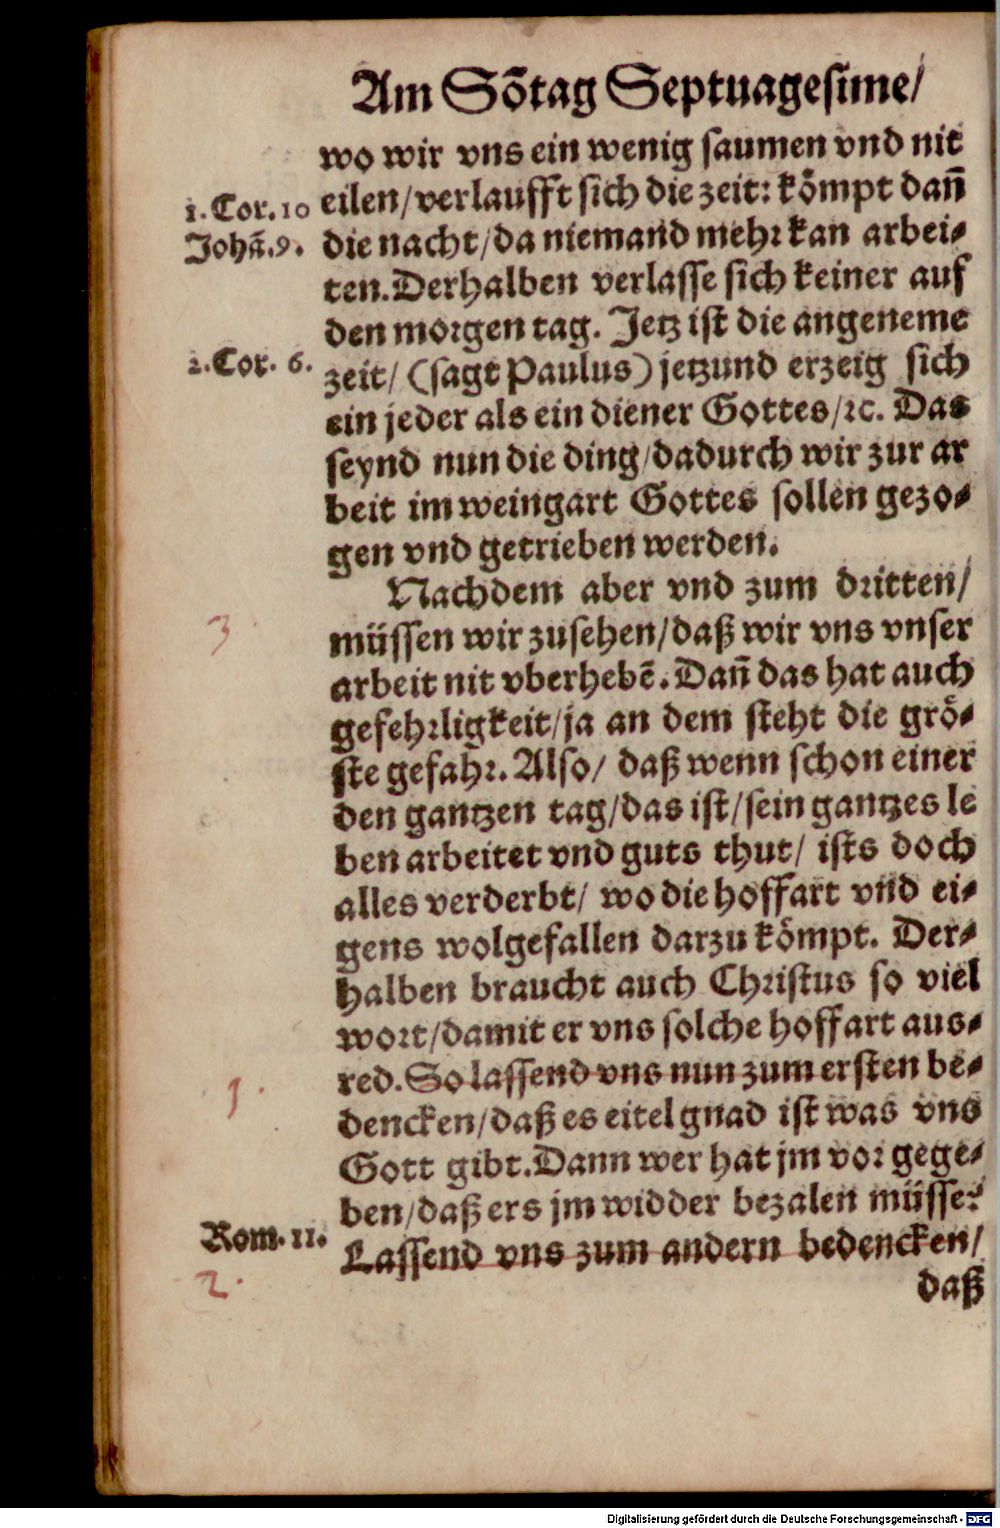 Am Sõtag Septuagesime/
wo wir vns ein wenig saumen vnd nit
1. Cor. 10
eilen/verlaufft sich die zeit: kömpt dañ
Johã. 9.
die nacht/da niemand mehr kan arbei-
ten. Derhalben verlasse sich keiner auf
den morgen tag. Jetz ist die angeneme
2. Cor. 6.
zeit/ (sagt Paulus) jetzund erzeig sich
ein jeder als ein diener Gottes/ꝛc. Das
seynd nun die ding/dadurch wir zur ar
beit im weingart Gottes sollen gezo-
gen vnd getrieben werden.
Nachdem aber vnd zum dritten/
3.
müssen wir zusehen/daß wir vns vnser
arbeit nit vberhebẽ. Dañ das hat auch
gefehrligkeit/ja an dem steht die grö-
ste gefahr. Also/ daß wenn schon einer
den gantzen tag/das ist/sein gantzes le
ben arbeitet vnd guts thut/ ists doch
alles verderbt/ wo die hoffart vnd ei-
gens wolgefallen darzu kömpt. Der-
halben braucht auch Christus so viel
wort/damit er vns solche hoffart aus-
red. So lassend vns nun zum ersten be-
1.
dencken/daß es eitel gnad ist was vns
Gott gibt. Dann wer hat jm vor gege-
ben/daß ers jm widder bezalen müsse?
Rom. 11.
Lassend vns zum andern bedencken/
2.
daß
Digitalisierung gefördert durch die Deutsche Forschungsgemeinschaft - DFG